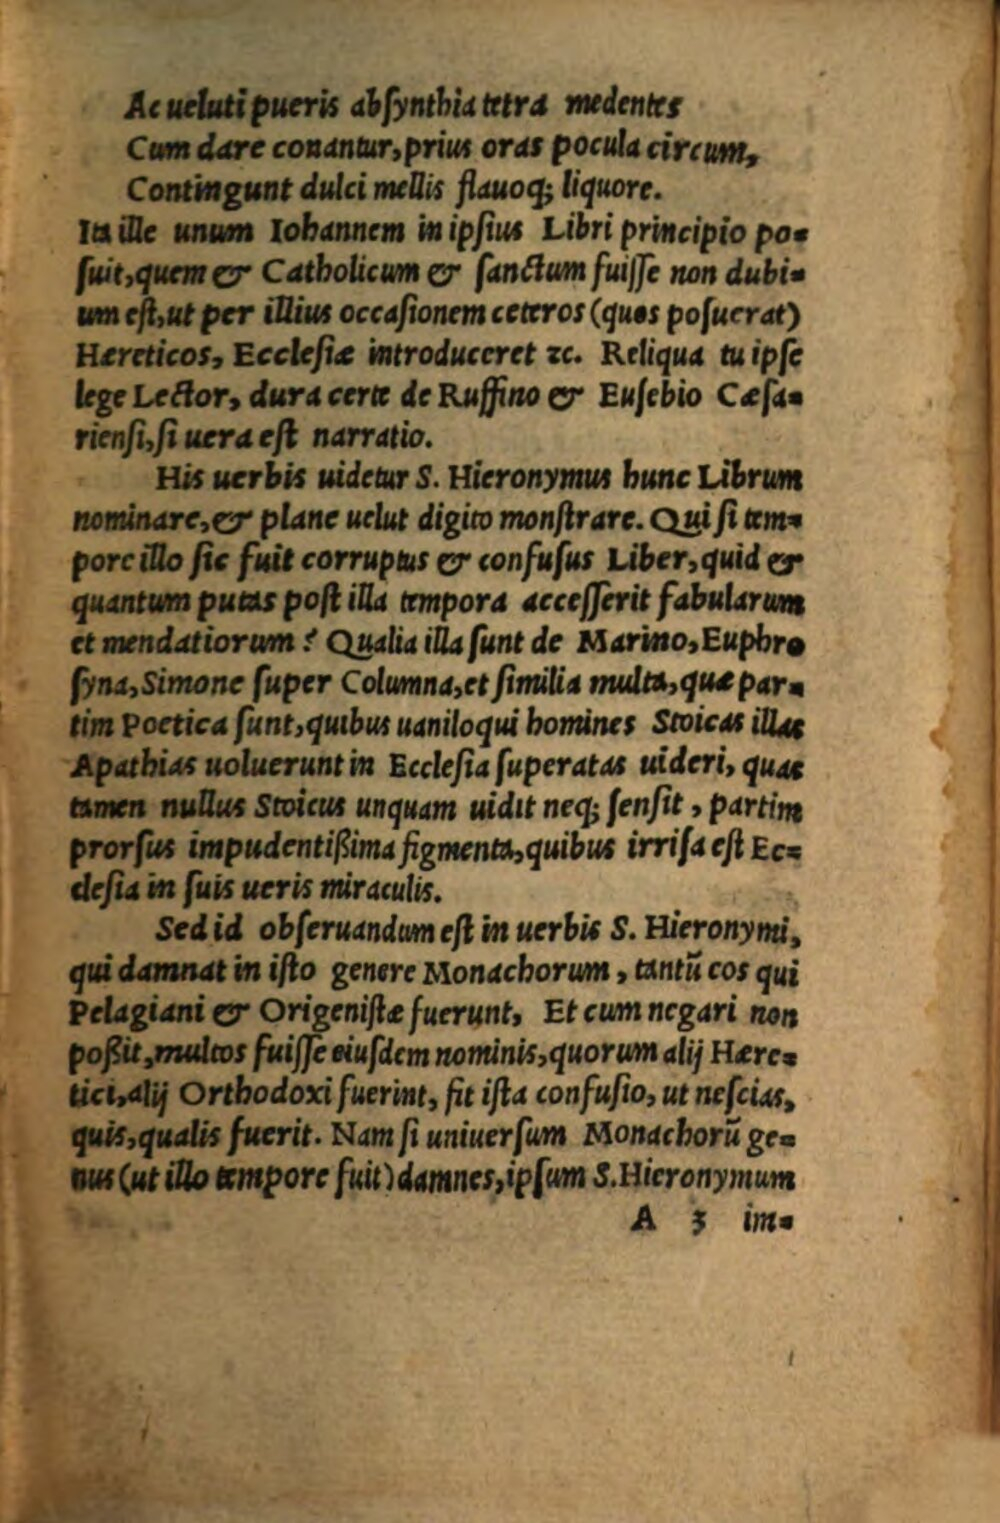 Ac ueluti pueris absynthia tetra medentes
Cum dare conantur, prius oras pocula circum,
Contingunt dulci mellis flauoq; liquore.
Ita ille unum Iohannem in ipsius Libri principio po-
suit, quem & Catholicum & sanctum fuisse non dubi-
um est, ut per illius occasionem ceteros (quos posuerat)
Hæreticos, Ecclesiæ introduceret ꝛc. Reliqua tu ipse
lege Lector, dura certe de Ruffino & Eusebio Cæsa-
riensi, si uera est narratio.
His uerbis uidetur S. Hieronymus hunc Librum
nominare, & plane uelut digito monstrare. Qui si tem-
pore illo sic fuit corruptus & confusus Liber, quid &
quantum putas post illa tempora accesserit fabularum
et mendatiorum? Qualia illa sunt de Marino, Euphro
syna, Simone super Columna, et similia multa, quæ par-
tim Poetica sunt, quibus uaniloqui homines Stoicas illas
Apathias uoluerunt in Ecclesia superatas uideri, quas
tamen nullus Stoicus unquam uidit neq; sensit, partim
prorsus impudentißima figmenta, quibus irrisa est Ec-
clesia in suis ueris miraculis.
Sed id obseruandum est in uerbis S. Hieronymi,
qui damnat in isto genere Monachorum, tantũ eos qui
Pelagiani & Origenistæ fuerunt, Et cum negari non
poßit, multos fuisse eiusdem nominis, quorum alij Hære-
tici, alij Orthodoxi fuerint, fit ista confusio, ut nescias,
quis, qualis fuerit. Nam si uniuersum Monachorũ ge-
nus (ut illo tempore fuit) damnes, ipsum S. Hieronymum
A 3 im-